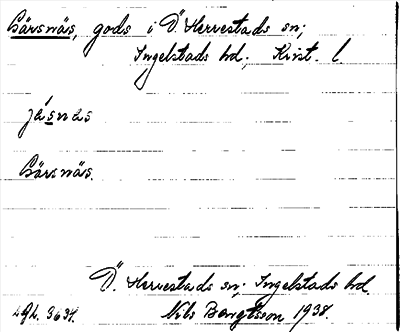 Bärsnäs, gods i Ö. Herrestads sn;
Ingelstads hd, Krist. l
jásnas
Bärsnäs.
Ö. Herrestads sn; Ingelstads hd.
Nils Bengtsson 1938.